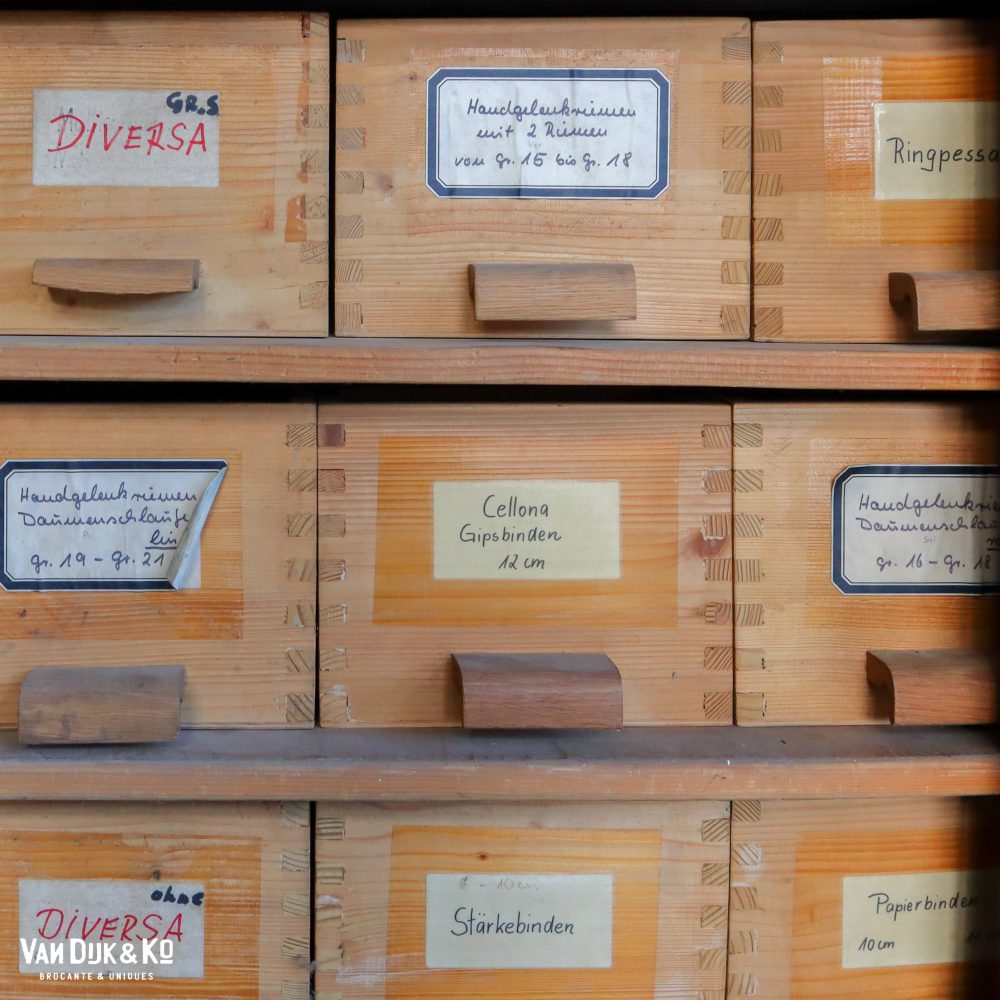 GR.S
DiVERSA
Handgelenkriemen
mit 2 Riemen
von Gr. 15 bis Gr. 18
Ringpessa
Handgelenkriemen
Daumenschlaufe
lin
Gr. 19 - Gr. 21
Cellona
Gipsbinden
12 cm
Handgelenkrie
Daumenschlau
Gr. 16 - Gr. 18
ohne
DiVERSA
VAN DIJK & KO
BROCANTE & UNIQUES
- 10 cm
Stärkebinden
Papierbinden
10 cm